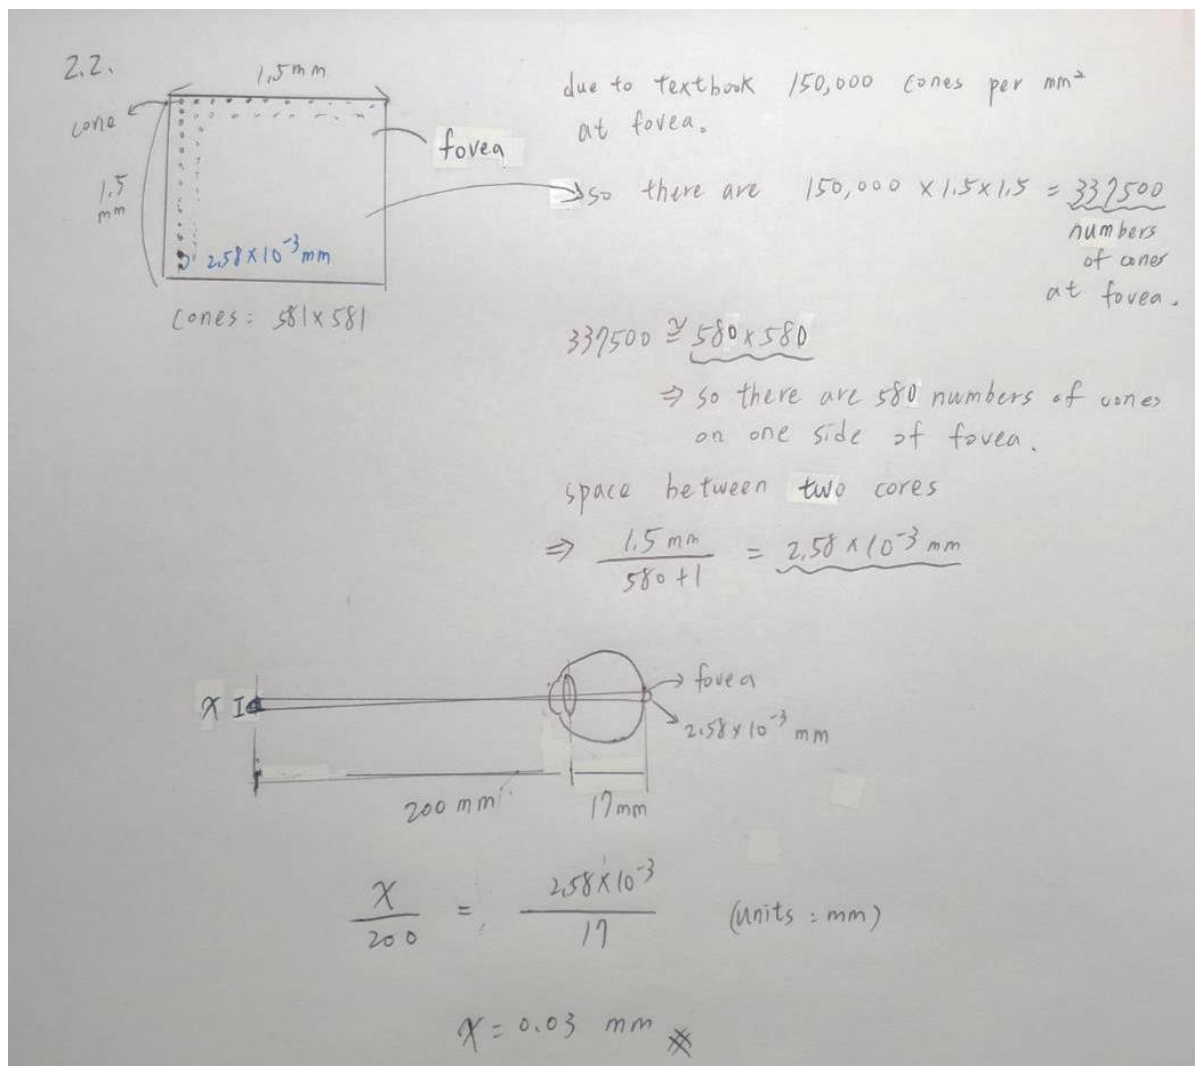 2.2.
1.5mm
cone
fovea
1.5
mm
2.58×10⁻³ mm
cones: 581×581
due to textbook 150,000 cones per mm²
at fovea.
so there are 150,000 × 1.5×1.5 = 337500
numbers
of cones
at fovea.
337500 ≅ 580×580
⇒ so there are 580 numbers of cones
on one side of fovea.
space between two cores
⇒ 1.5 mm / 580+1 = 2.58 × 10⁻³ mm
fovea
x
2.58×10⁻³ mm
200 mm
17mm
x / 200 = 2.58×10⁻³ / 17 (units : mm)
x = 0.03 mm